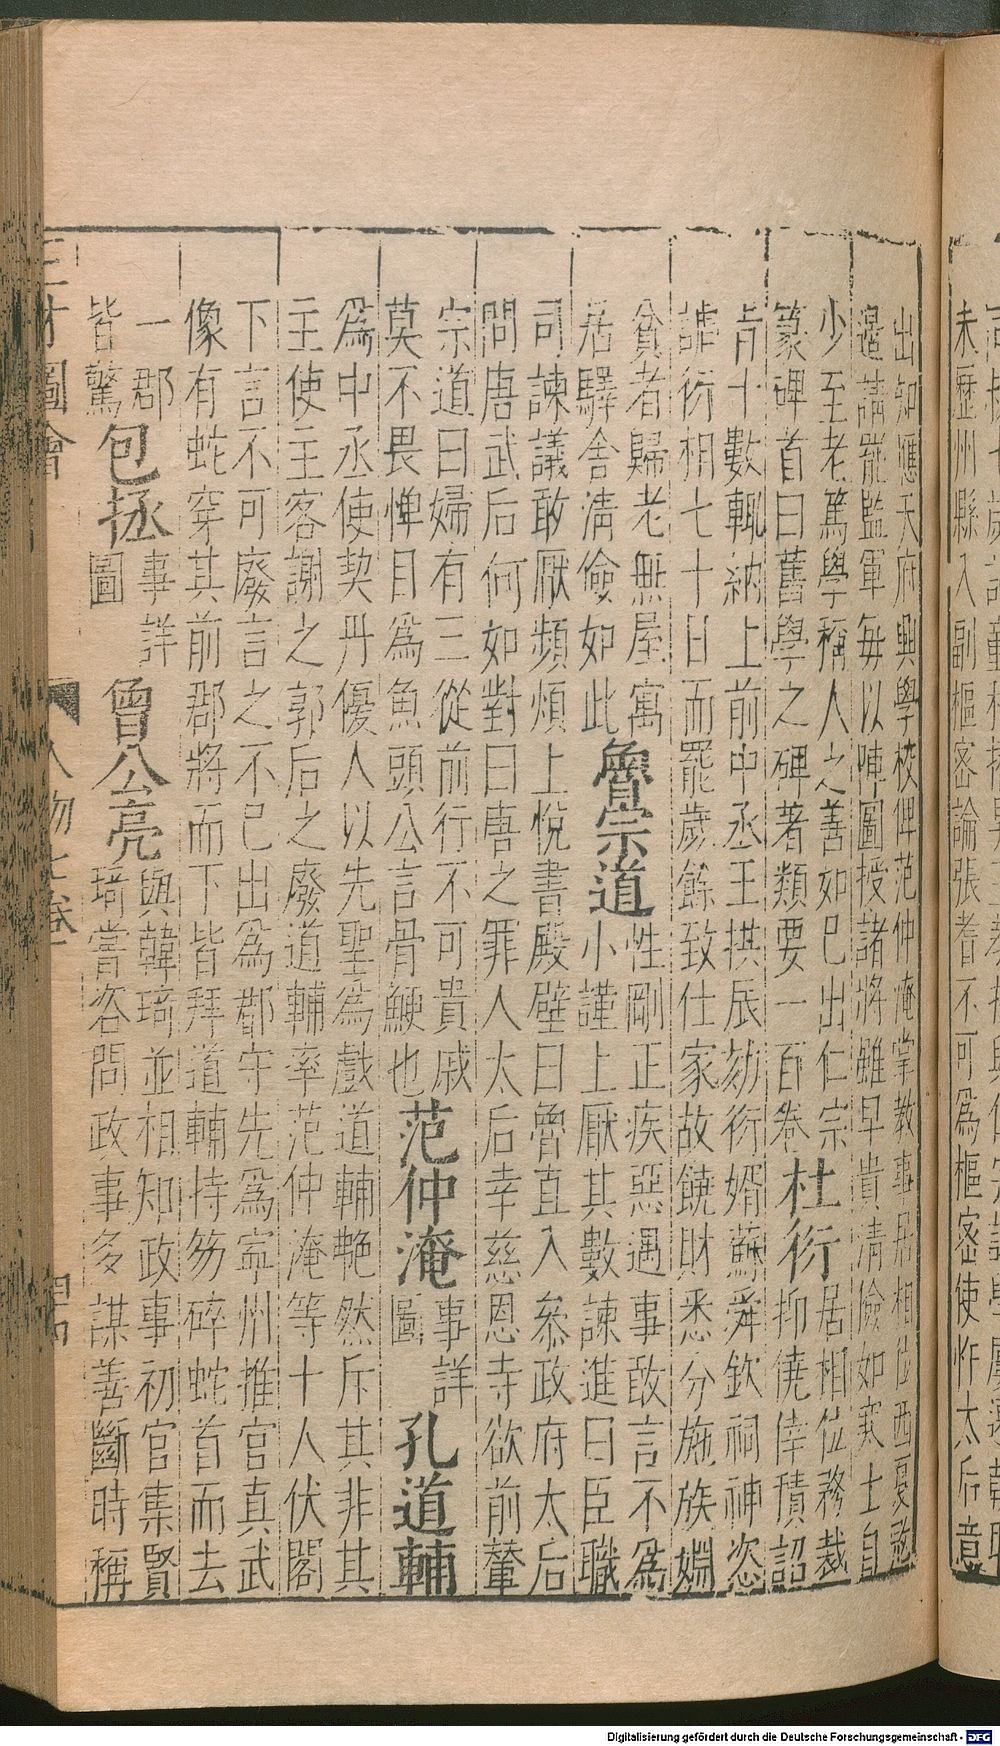 未歷州縣入副樞密論張耆不可爲樞密使忤太后意
出知應天府興學校俾范仲淹掌教事居相位西憂敦
邊請罷監軍每以陣圖授諸將雖早貴清儉如寒士自
少至老篤學稱人之善如已出仁宗
篆碑首曰舊學之碑著類要一百卷
杜衍
居相位務裁
抑僥倖積詔
肯十數輒納上前中丞王拱辰劾衍婿蘇舜欽祠神恣
謔衍相七十日而罷歲餘致仕家故饒財悉分施族婣
貧者歸老無屋寓
居驛舍清儉如此
魯宗道
性剛正疾惡遇事敢言不爲
小謹上厭其數諫進曰臣職
司諫議敢厭頻煩上悅書殿壁曰魯直入叅政府太后
問唐武后何如對曰唐之罪人太后幸慈恩寺欲前輦
宗道曰婦有三從前行不可貴戚
莫不畏憚目爲魚頭公言骨鯁也
范仲淹
事詳
圖
孔道輔
爲中丞使契丹優人以先聖爲戲道輔艴然斥其非其
主使主客謝之郭后之廢道輔率范仲淹等十人伏閤
下言不可廢言之不已出爲郡守先爲寧州推官真武
像有蛇穿其前郡將而下皆拜道輔持笏碎蛇首而去
一郡
皆驚
包拯
事詳
圖
曾公亮
與韓琦並相知政事初官集賢
琦嘗咨問政事多謀善斷時稱
三才圖會
人物七卷
四
Digitalisierung gefördert durch die Deutsche Forschungsgemeinschaft - DFG